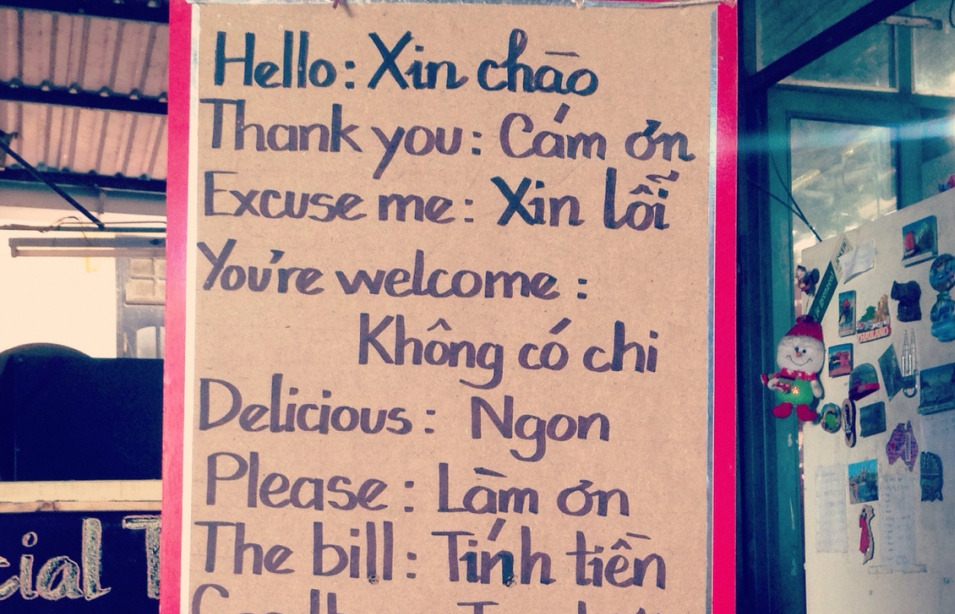 Hello: Xin chào
Thank you: Cám ơn
Excuse me: Xin lỗi
You're welcome:
Không có chi
Delicious: Ngon
Please: Làm ơn
The bill: Tính tiền
cial T